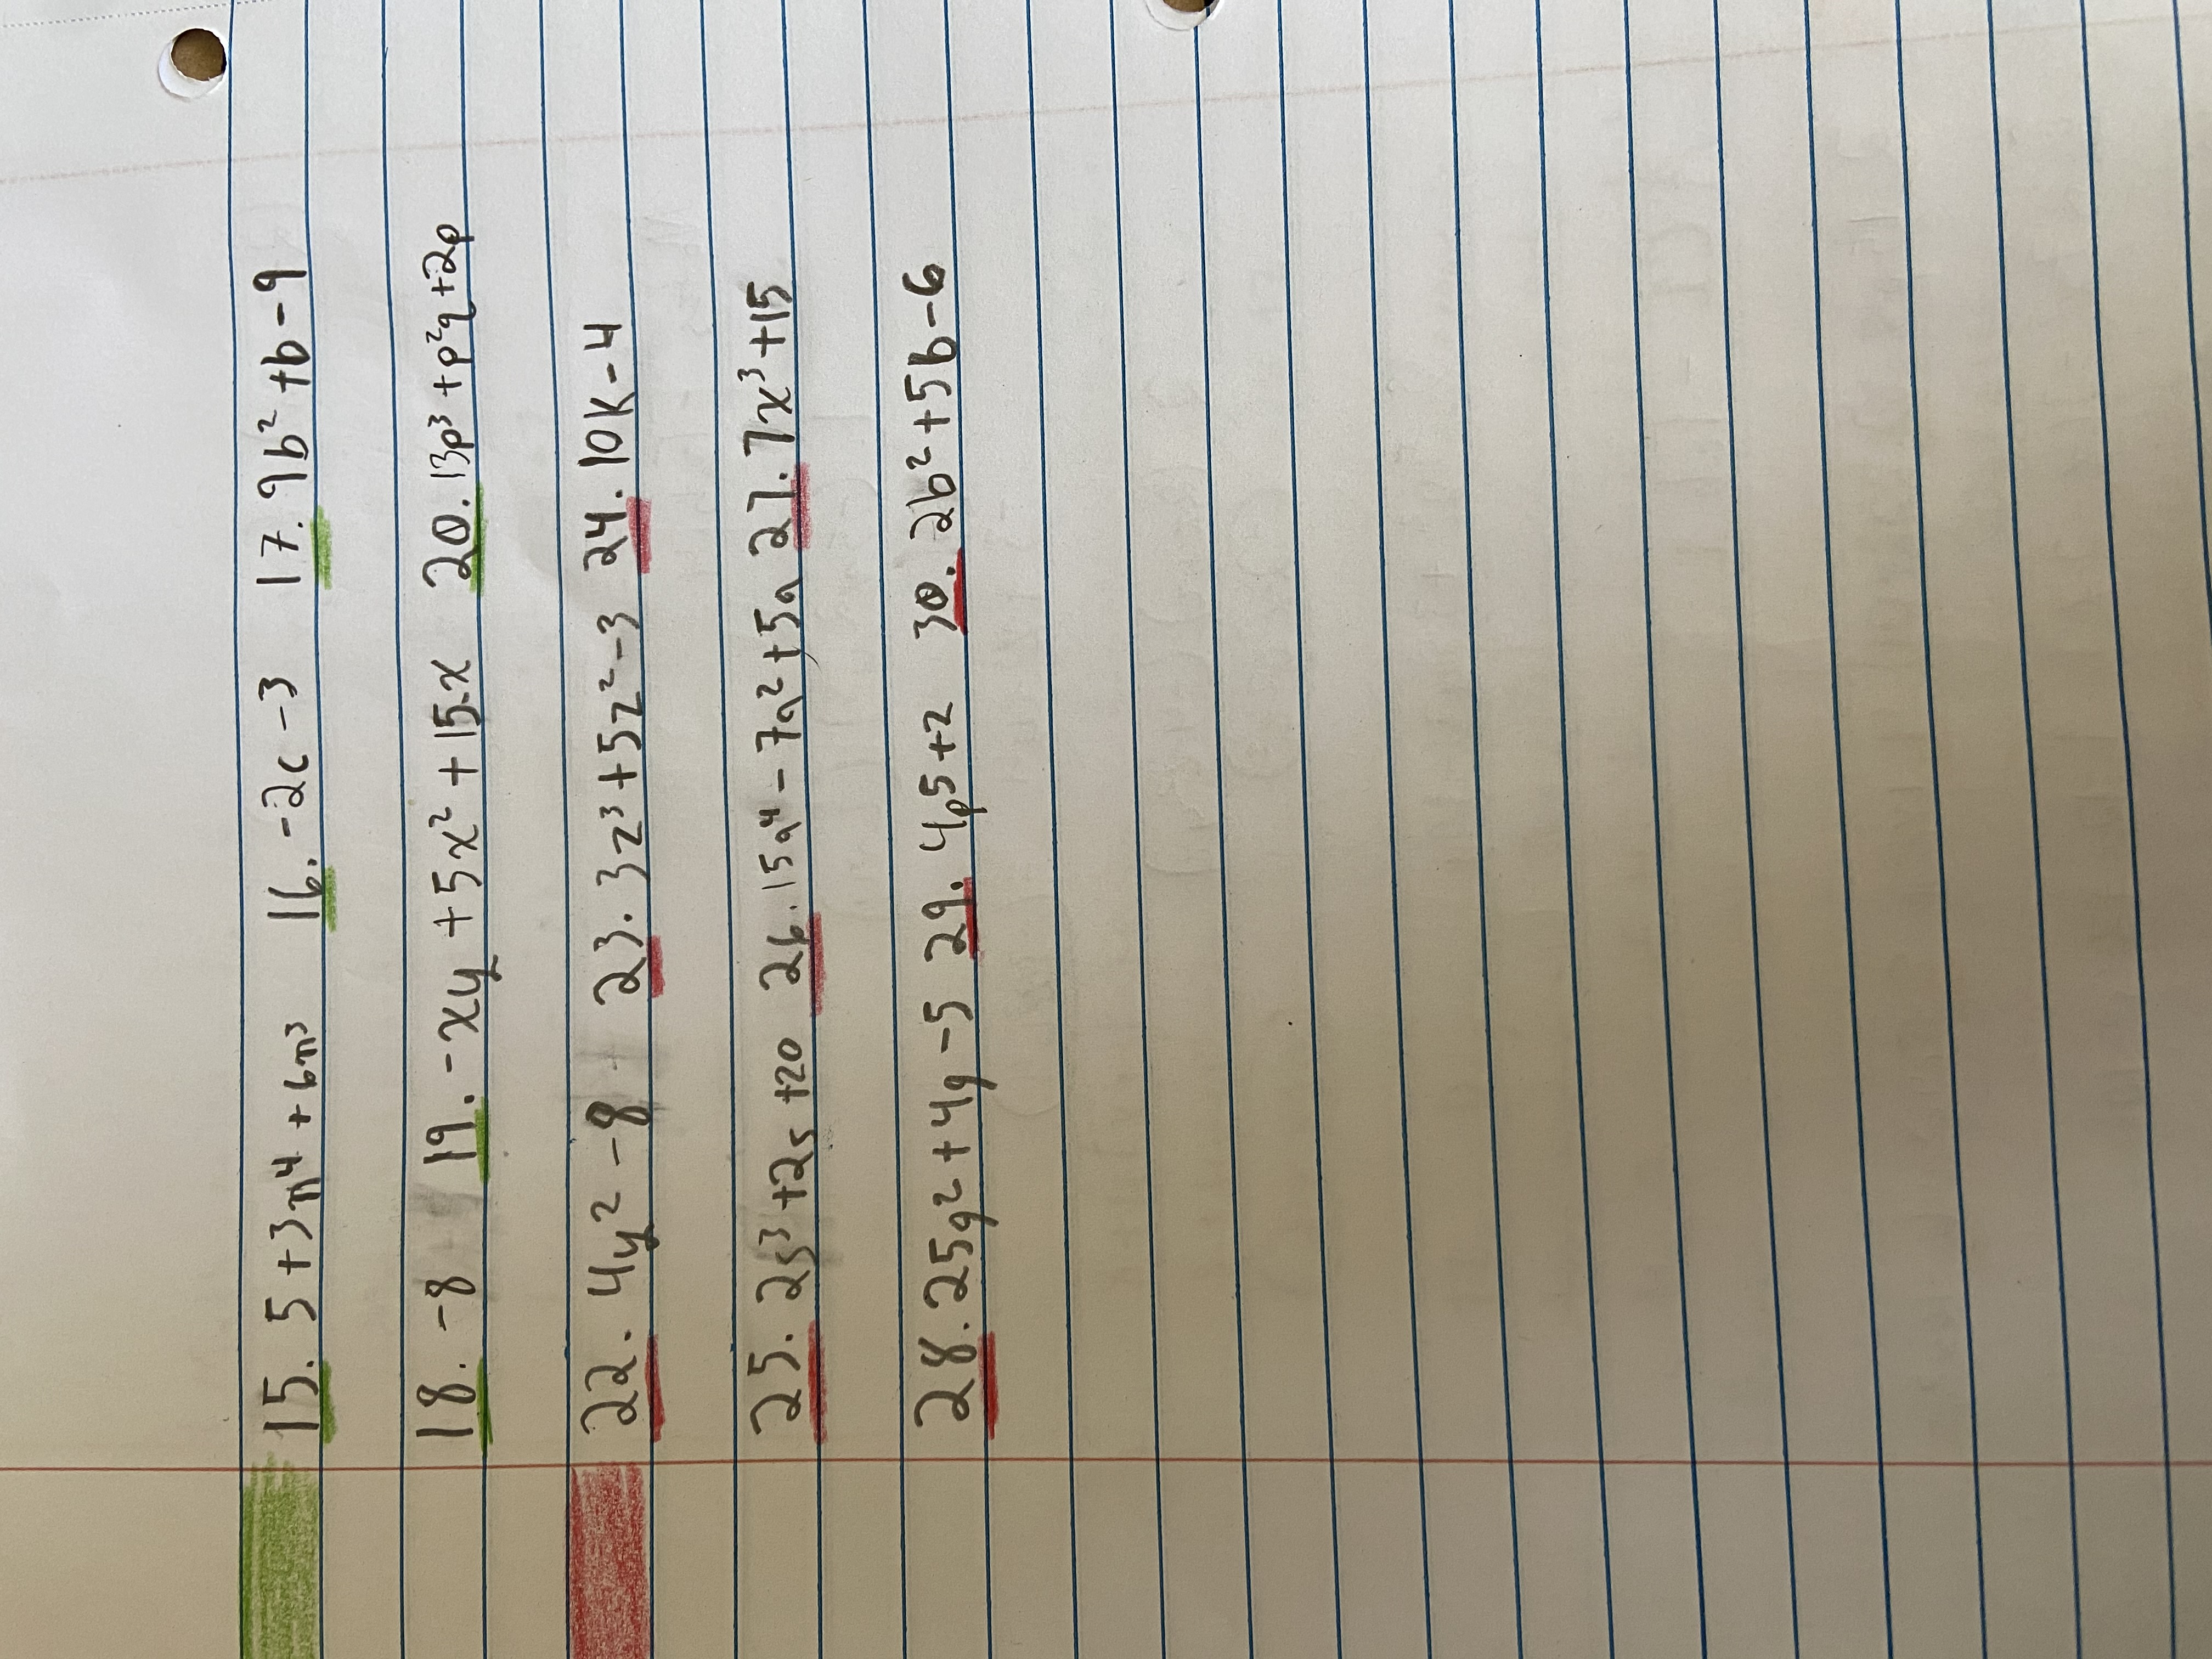 15. 5+3n⁴ + 6n³ 16. -2c -3 17. 9b² +b-9
18. -8 19. -xy +5x² +15x 20. 13p³ +p²q +2p
22. 4y² -8 23. 3z³+5z²-3 24. 10k-4
25. 2s³ +2s +20 26. 15a⁴ - 7a² +5a 27. 7x³ +15
28. 25g² +4g -5 29. 4p5+2 30. 2b²+5b-6